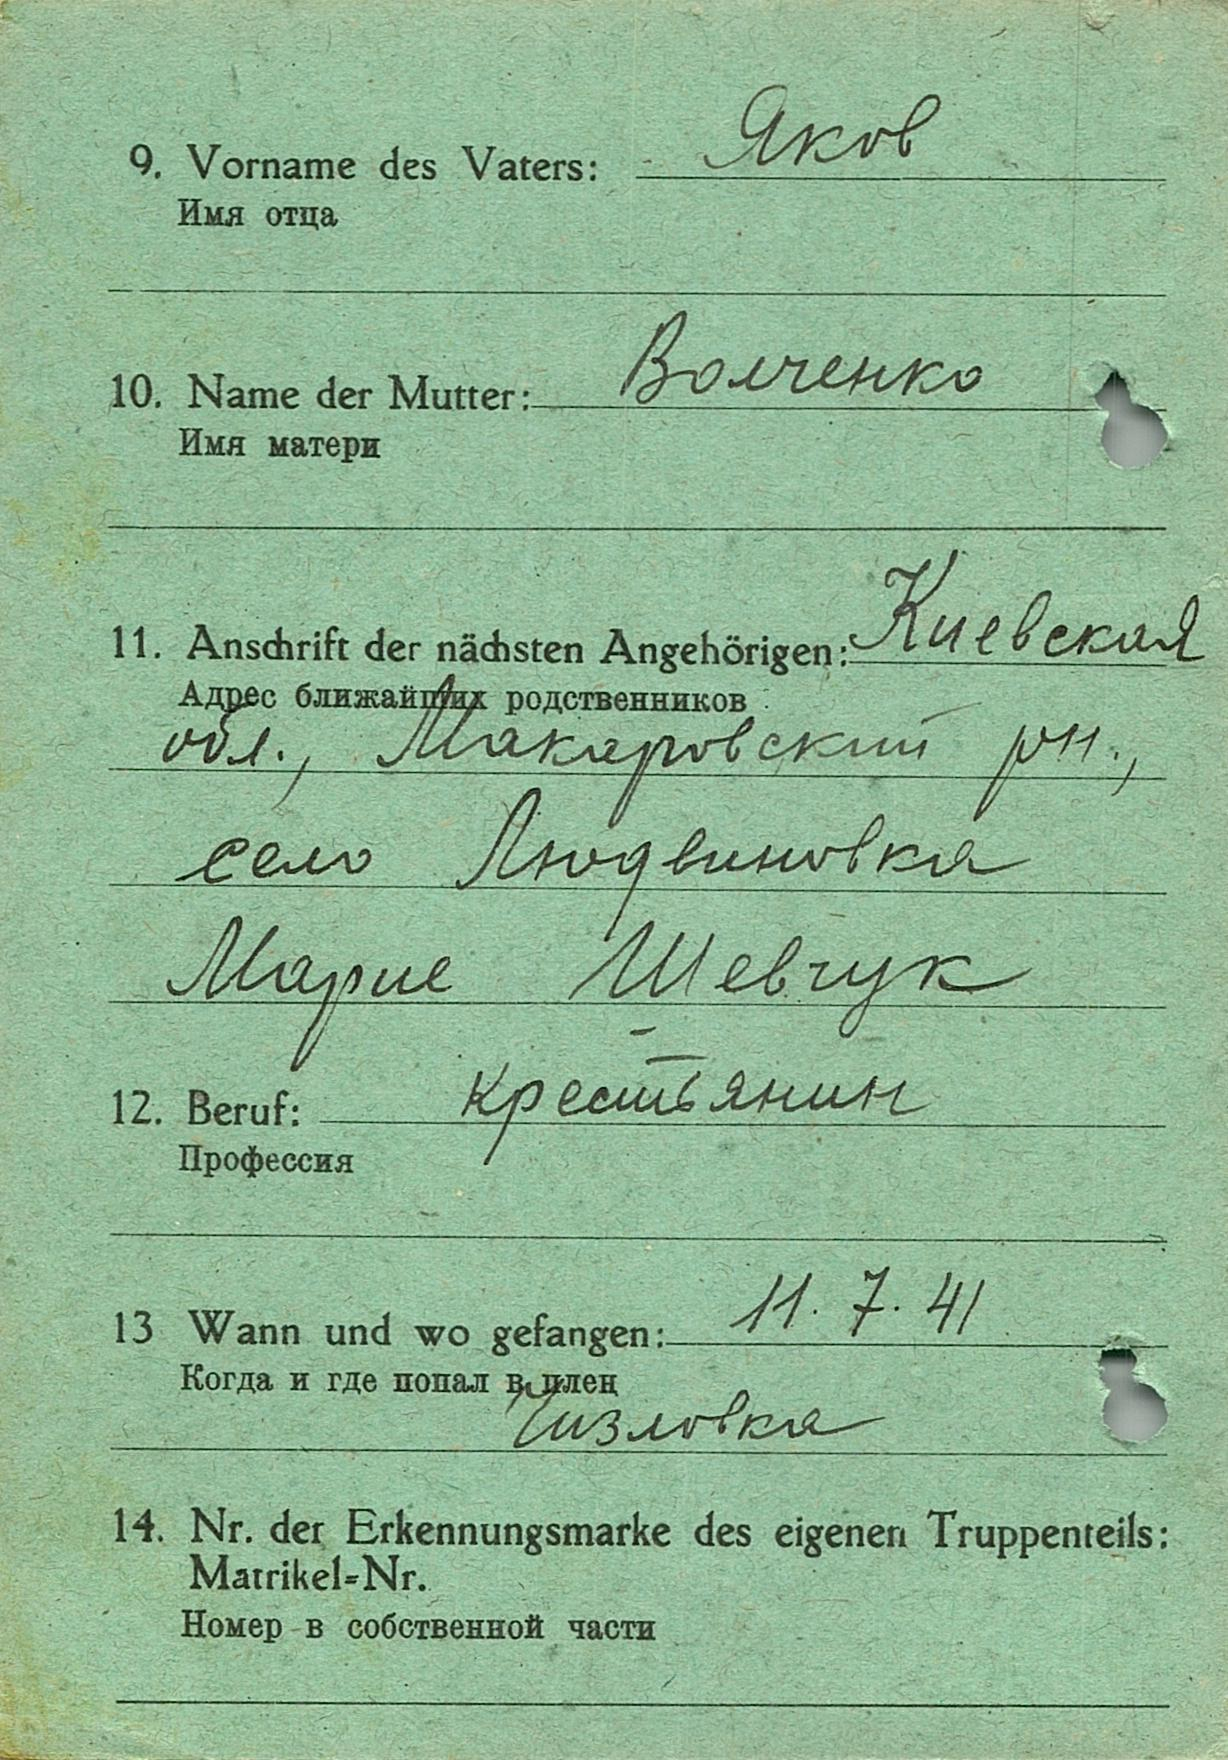 9. Vorname des Vaters: Яков
Имя отца
10. Name der Mutter: Волченко
Имя матери
11. Anschrift der nächsten Angehörigen: Киевская
Адрес ближайших родственников
обл., Макаровский рн.,
село Людвиновка
Марие Шевчук
12. Beruf: крестьянин
Профессия
13 Wann und wo gefangen: 11. 7. 41
Когда и где попал в плен
Чизловка
14. Nr. der Erkennungsmarke des eigenen Truppenteils:
Matrikel=Nr.
Номер в собственной части